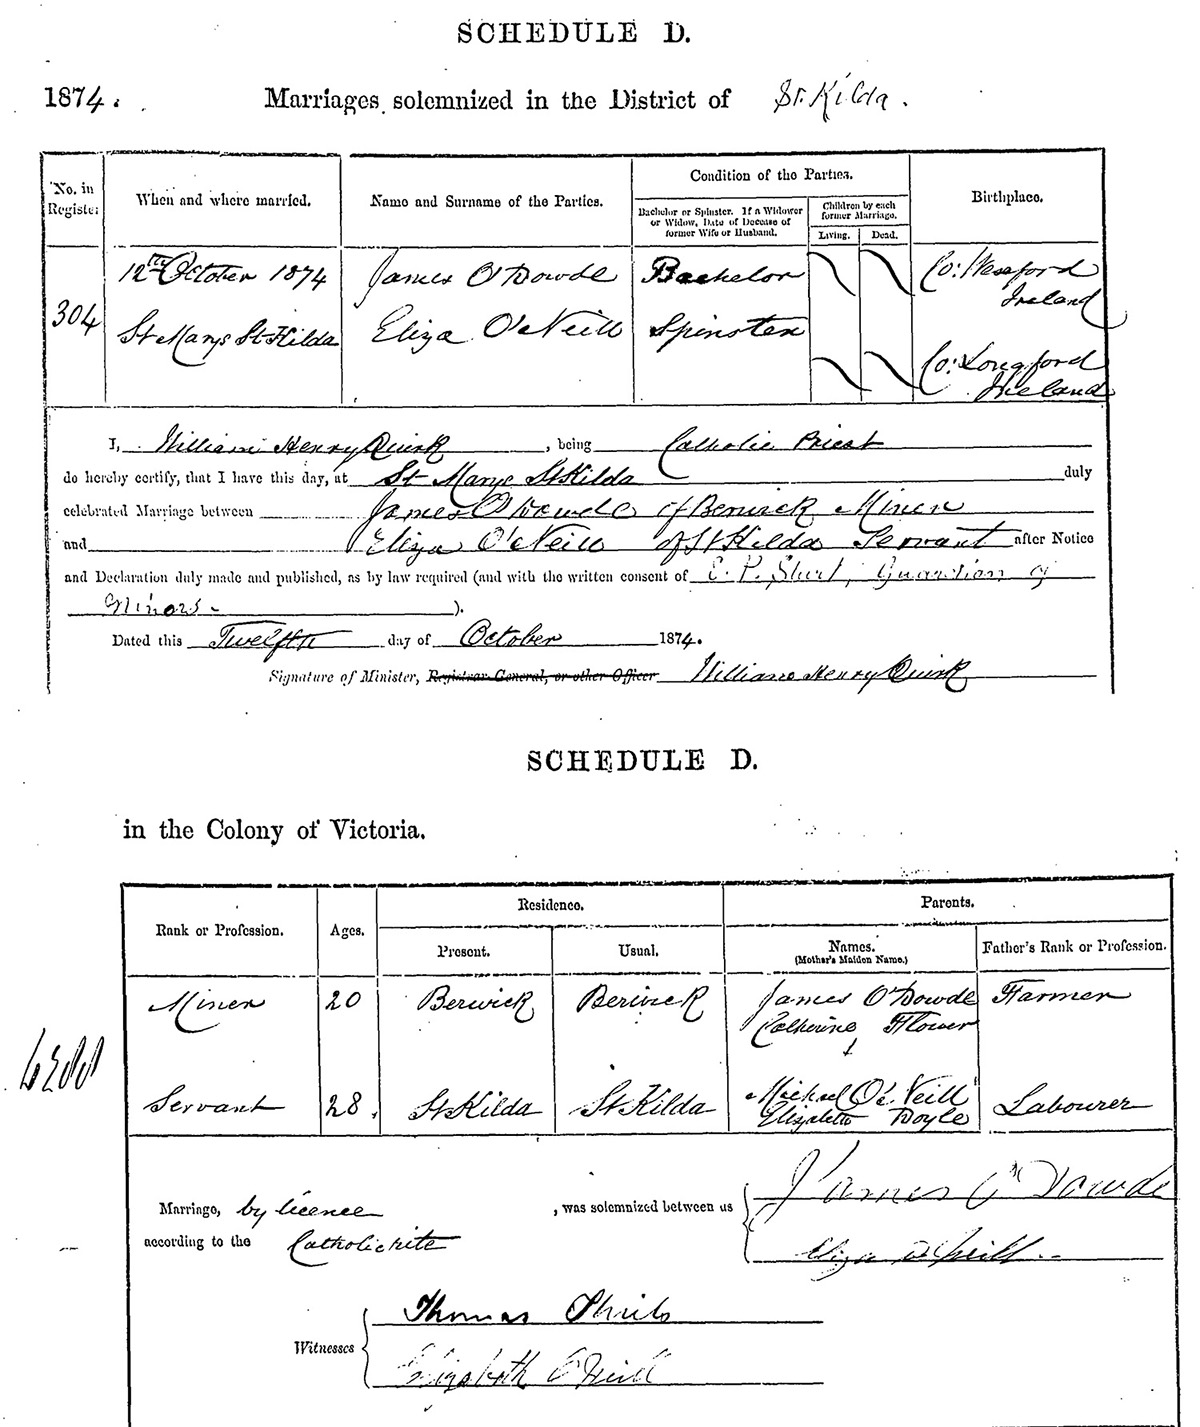 SCHEDULE D.
1874. Marriages solemnized in the District of St. Kilda.
No. in Register When and where married. Name and Surname of the Parties. Condition of the Parties. Birthplace.
Bachelor or Spinster. If a Widower or Widow, Date of Decease of former Wife or Husband. Children by each former Marriage.
Living. Dead.
304 12th October 1874 James O'Dowde Bachelor Co: Wexford Ireland
St Marys St Kilda Eliza O'Neill Spinster Co: Longford Ireland
I, William Henry Quirk, being Catholic Priest
do hereby certify, that I have this day, at St Marys St Kilda duly
celebrated Marriage between James O'Dowde of Berwick Miner
and Eliza O'Neill of St Kilda Servant after Notice
and Declaration duly made and published, as by law required (and with the written consent of E. P. Guardian of
Minors ).
Dated this Twelfth day of October 1874.
Signature of Minister, Registrar-General, or other Officer William Henry Quirk
SCHEDULE D.
in the Colony of Victoria.
Rank or Profession. Ages. Residence. Parents.
Present. Usual. Names. (Mother's Maiden Name.) Father's Rank or Profession.
Miner 20 Berwick Berwick James O'Dowde Farmer
Catherine Flower
Servant 28. St Kilda St Kilda Michael O'Neill Labourer
Elizabeth Doyle
Marriage, by licence, was solemnized between us James O'Dowde
according to the Catholic rite Eliza O'Neill
Witnesses Thomas
Elizabeth O'Neill